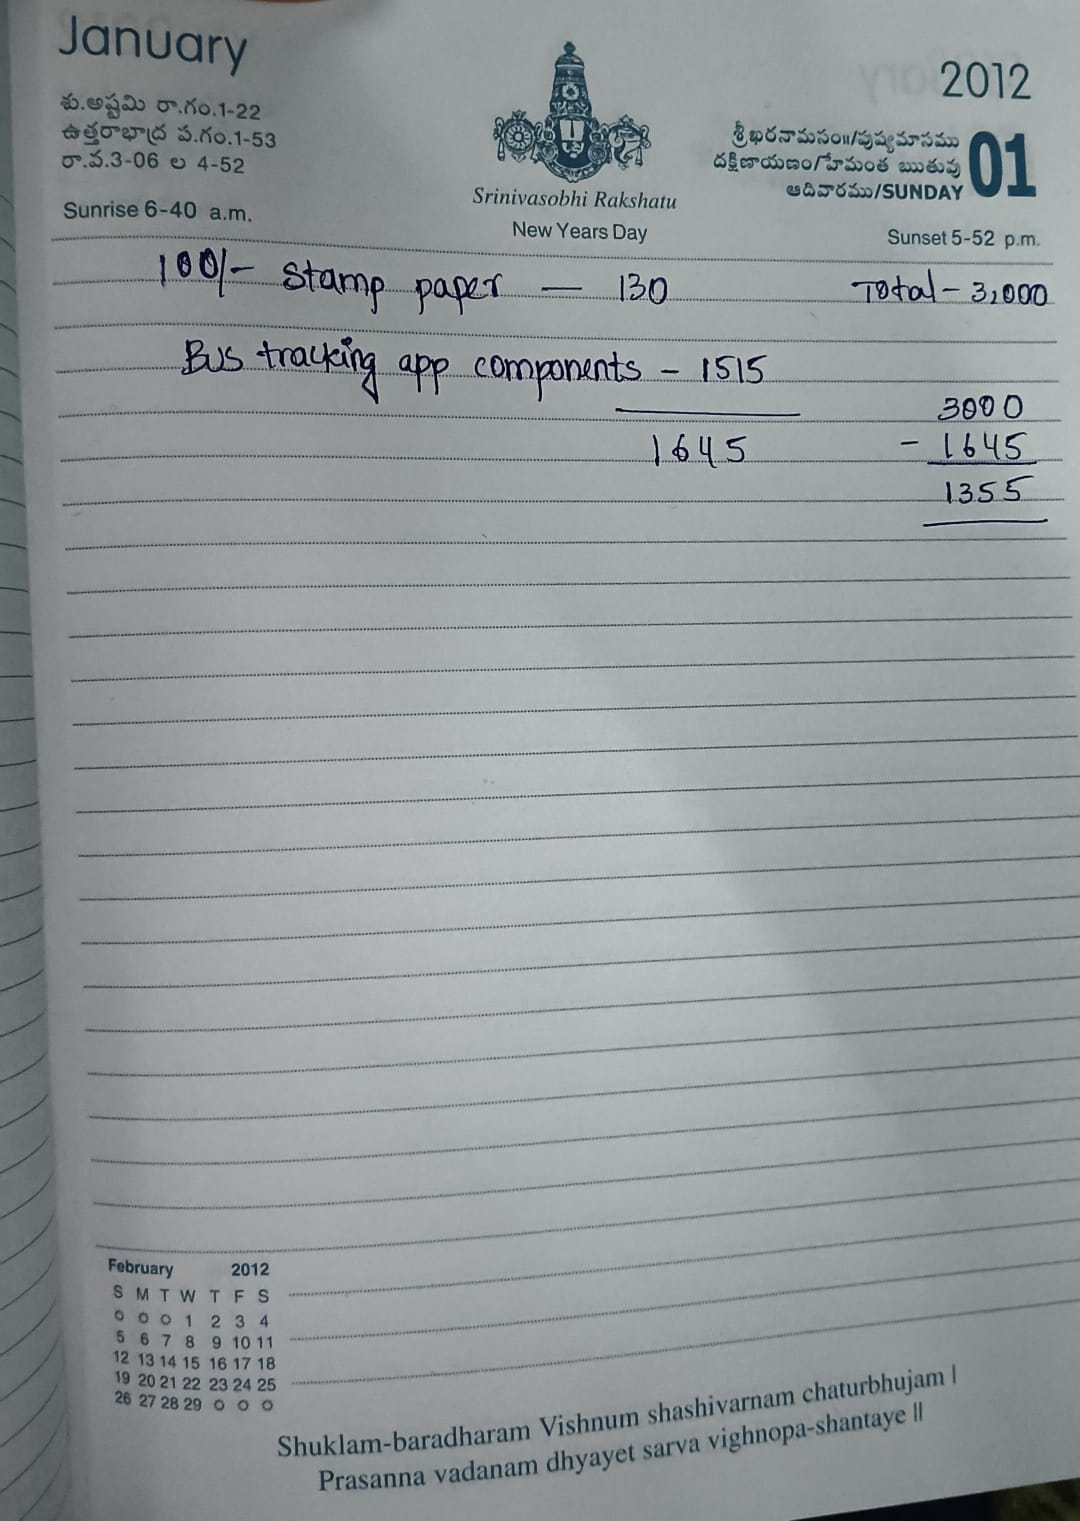 January
2012
శు.అష్టమి రా.గం.1-22
ఉత్తరాభాద్ర ప.గం.1-53
రా.వ.3-06 ల 4-52
Sunrise 6-40 a.m.
Srinivasobhi Rakshatu
New Years Day
శ్రీఖరనామసం॥/పుష్యమాసము
దక్షిణాయణం/హేమంత ఋతువు
ఆదివారము/SUNDAY
01
Sunset 5-52 p.m.
100/- stamp paper — 130
Total - 3,000
Bus tracking app components - 1515
1645
3000
- 1645
1355
February 2012
S M T W T F S
1 2 3 4
5 6 7 8 9 10 11
12 13 14 15 16 17 18
19 20 21 22 23 24 25
26 27 28 29
Shuklam-baradharam Vishnum shashivarnam chaturbhujam |
Prasanna vadanam dhyayet sarva vighnopa-shantaye ||